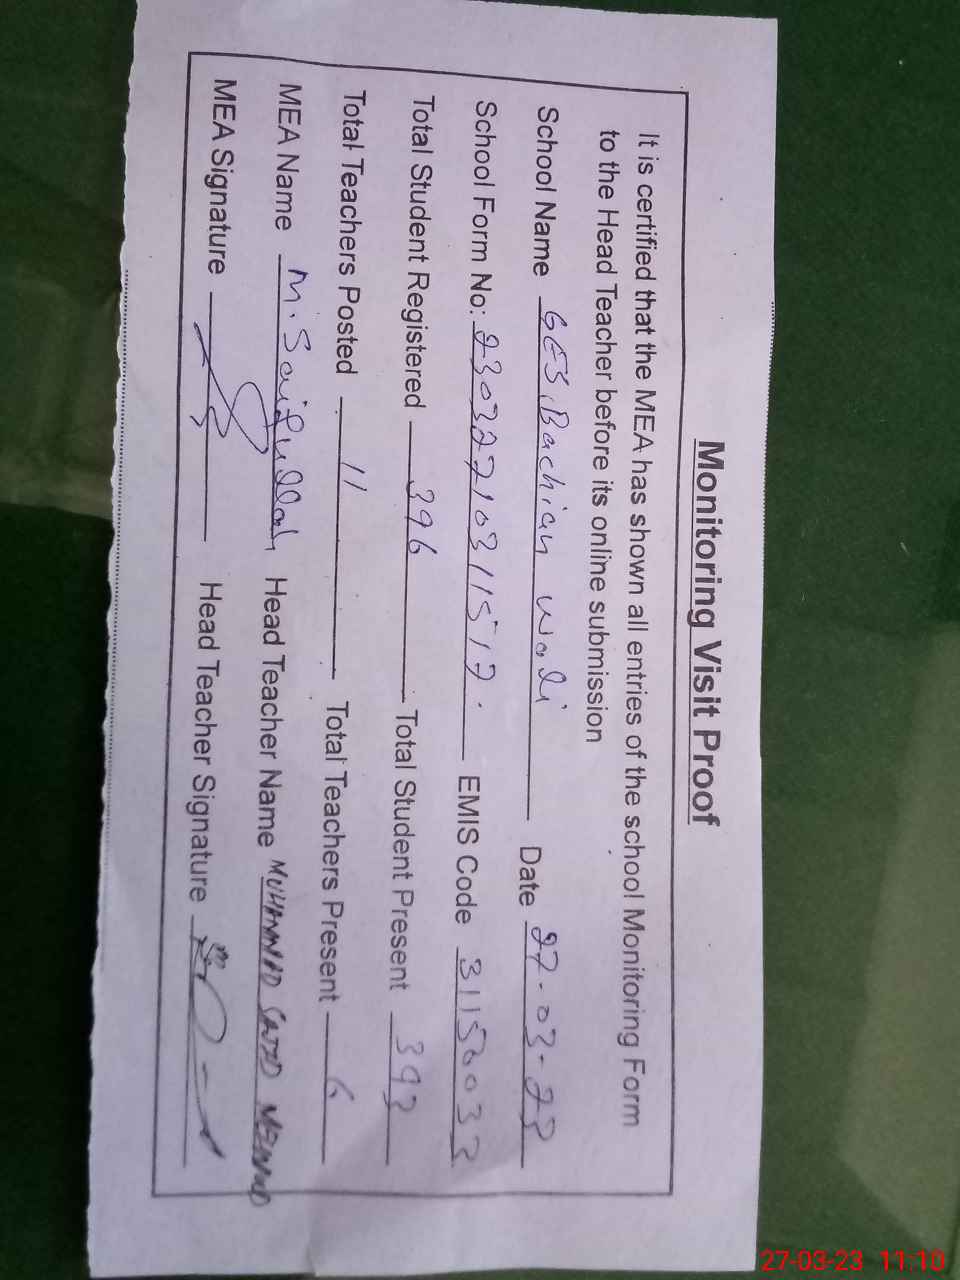 Monitoring Visit Proof
It is certified that the MEA has shown all entries of the school Monitoring Form
to the Head Teacher before its online submission
School Name GES, Bachian wali Date 27-03-23
School Form No: 23032710311517. EMIS Code 31150033
Total Student Registered 396 Total Student Present 393
Total Teachers Posted 11 Total Teachers Present 6
MEA Name M. Saifullah Head Teacher Name MUHAMMAD SAJID
MEA Signature Head Teacher Signature
27-03-23 11:10